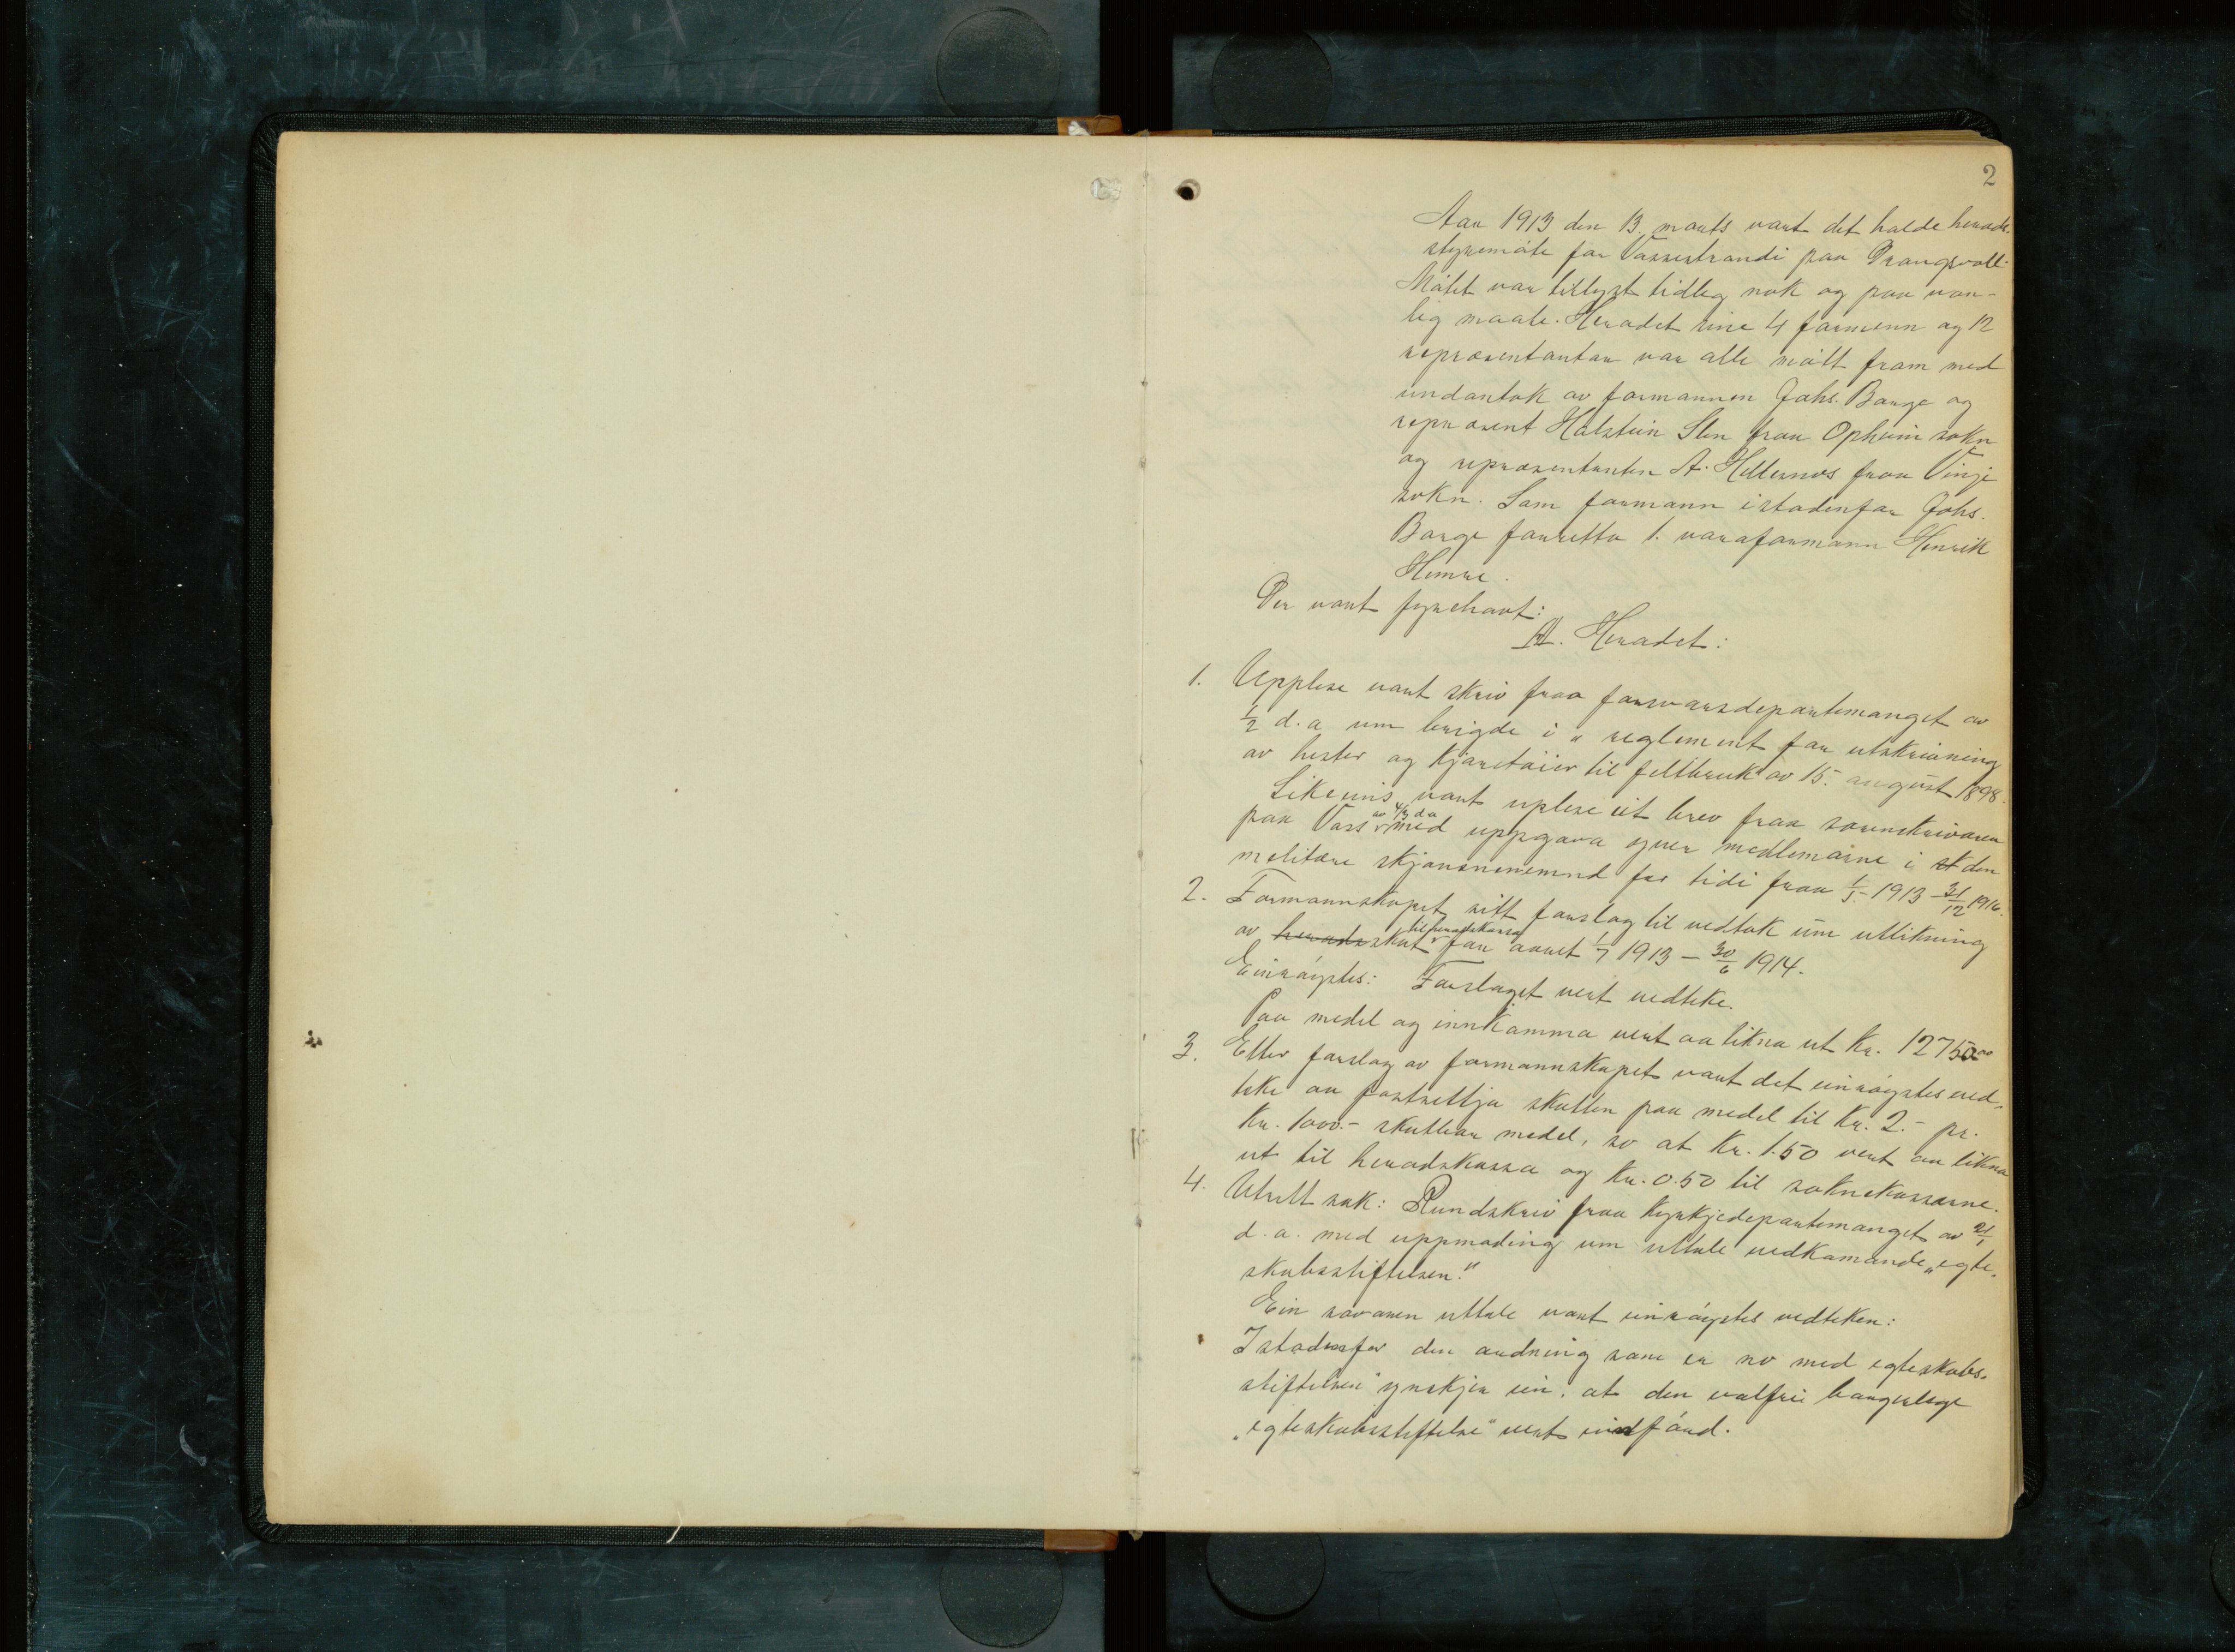 2
Aar 1913 den 13. marts vart det halde herads-
styremöte for Vossestrandi paa Draugsvoll.
Mötet var tillyst tidleg nok og paa van-
leg maate. Heradet sine 4 formenn og 12
repræsentantar var alle mött fram med
undantak av formannen Johs. Børge og
represent Halstein Sten fraa Opheim sokn
og repræsentanten A. Hellesnes fraa Vinje
sokn. Som formann istadenfor Johs.
Børge forretta 1. varaformann Henrik
Himle.
Der vart fyrehavt:
A. Heradet:
1. Upplese vart skriv fraa forsvarsdepartemanget av
1/2 d.a. um brigde i „reglement for utskrivning
av hester og kjøretöier til feltbruk av 15. august 1898.
Likeeins vart uplese eit brev fraa sorenskrivaren
paa Voss av 4/3 da med uppgava yver medlemarne i st den
militære skjønsnemnd for tidi fraa 1/1-1913 – 31/12 1916.
2. Formannskapet sitt forslag til vedtak um utlikning
av heradsskat til heradskassa for aaret 1/7 1913 – 30/6 1914.
Einröystes: Forslaget vert vedteke.
Paa medel og innkomma vert aa likna ut kr. 12750.00
3. Etter forslag av formannskapet vart det einröystes ved-
teke aa fastsettja skatten paa medel til kr. 2.- pr.
kr. 1000.- skatbar medel, so at kr. 1.50 vert aa likna
ut til heradskassa og kr. 0.50 til soknekassarne.
4. Utsett sak: Rundskriv fraa kyrkjedepartemanget av 21/1
d.a. med uppmoding um uttale vedkomande „egte-
skabsstiftelsen."
Ein sovoren uttale vart einröystes vedteken:
Istadenfor den ordning som er no med egteskabs-
stiftelsen" ynskjer ein, at den valfrie borgerlege
„egteskabsstiftelse" vert innförd.